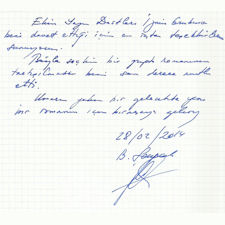 Ekin Yazın Dostları
beni davet ettiği için en içten teşekkürlerimi
sunuyorum.
Böyle seçkin bir grupla romanımın
tartışılması beni son derece mutlu
etti.
Umarım yakın bir gelecekte yeni
bir romanım için biraraya geliriz
28/02/2014
B.